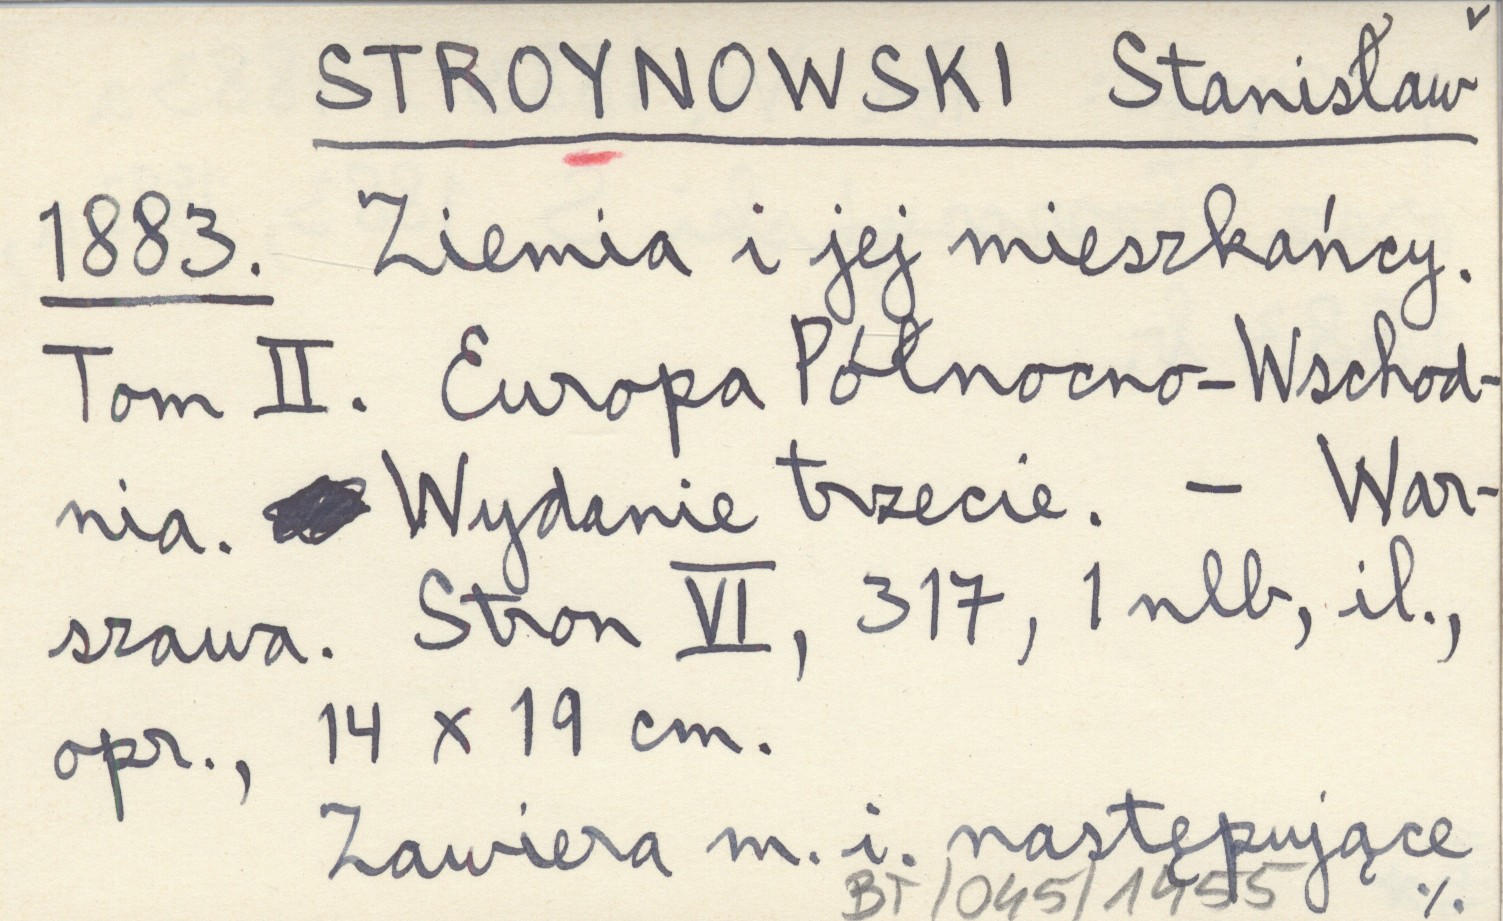 STROYNOWSKI Stanisław
1883. Ziemia i jej mieszkańcy.
Tom II. Europa Północno-Wschod-
nia. Wydanie trzecie. - War-
szawa. Stron VI, 317, 1 nlb, il.,
opr., 14 x 19 cm.
Zawiera m. i. następujące
BT/045/1455 ·/.